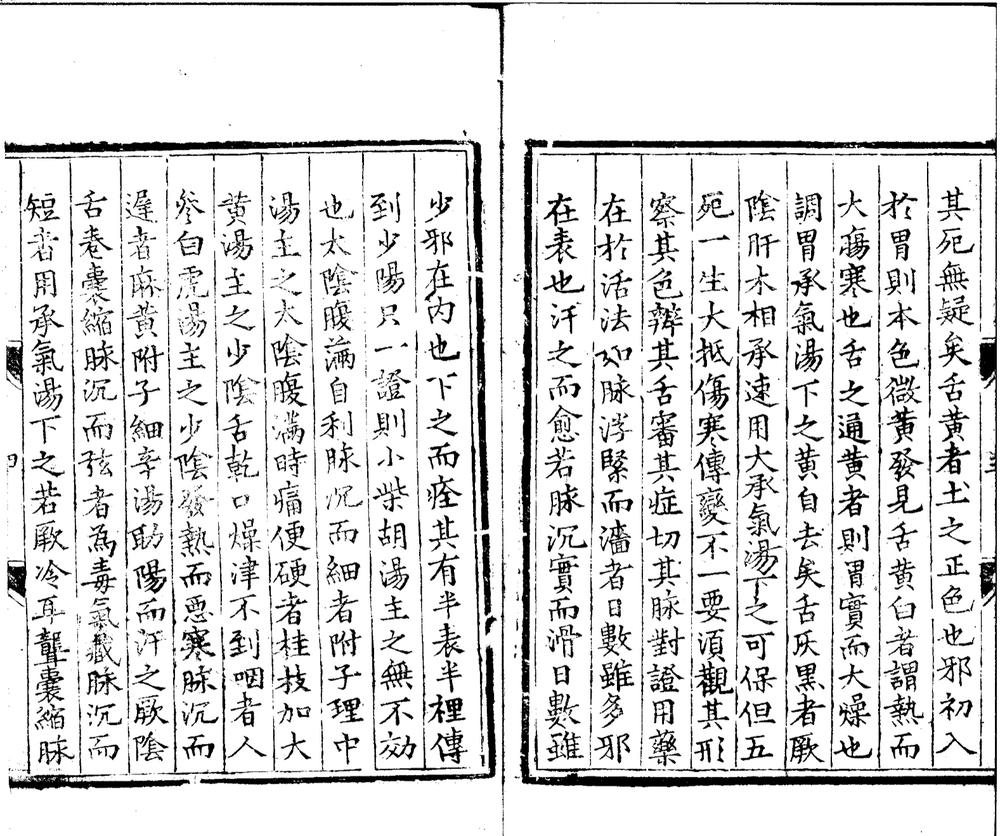 其死無疑矣舌黃者土之正色也邪初入
於胃則本色微黃發見舌黃白者謂熱而
大傷寒也舌之通黃者則胃實而大燥也
調胃承氣湯下之黃自去矣舌灰黑者厥
陰肝木相承速用大承氣湯下之可保但五
死一生大抵傷寒傳變不一要須觀其形
察其色辨其舌審其症切其脉對證用藥
在於活法如脉浮緊而濇者日數雖多邪
在表也汗之而愈若脉沉實而滑日數雖
少邪在內也下之而痊其有半表半裡傳
到少陽只一證則小柴胡湯主之無不効
也太陰腹滿自利脉沉而細者附子理中
湯主之太陰腹滿時痛便硬者桂枝加大
黃湯主之少陰舌乾口燥津不到咽者人
參白虎湯主之少陰發熱而惡寒脉沉而
遲者麻黃附子細辛湯助陽而汗之厥陰
舌卷囊縮脉沉而弦者為毒氣藏脉沉而
短者用承氣湯下之若厥冷耳聾囊縮脉
四